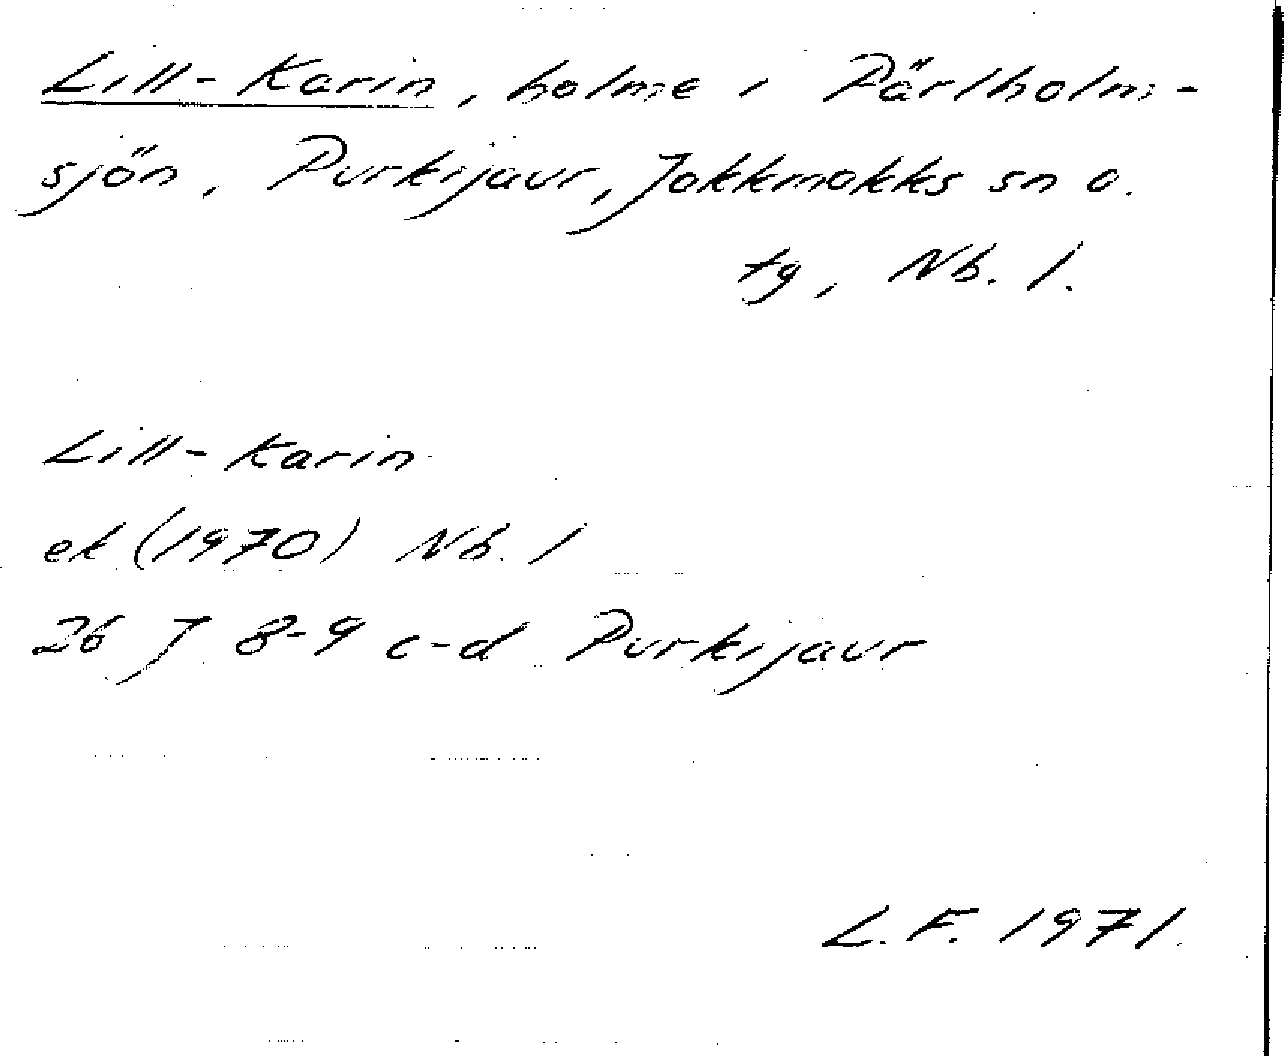 Lill-Karin, holme i Pärlholm-
sjön, Purkijaur, Jokkmokks sn o.
tg, Nb. l.
Lill-Karin
ek (1970) Nb. l
26 J 8-9 c-d Purkijaur
L.F. 1971.